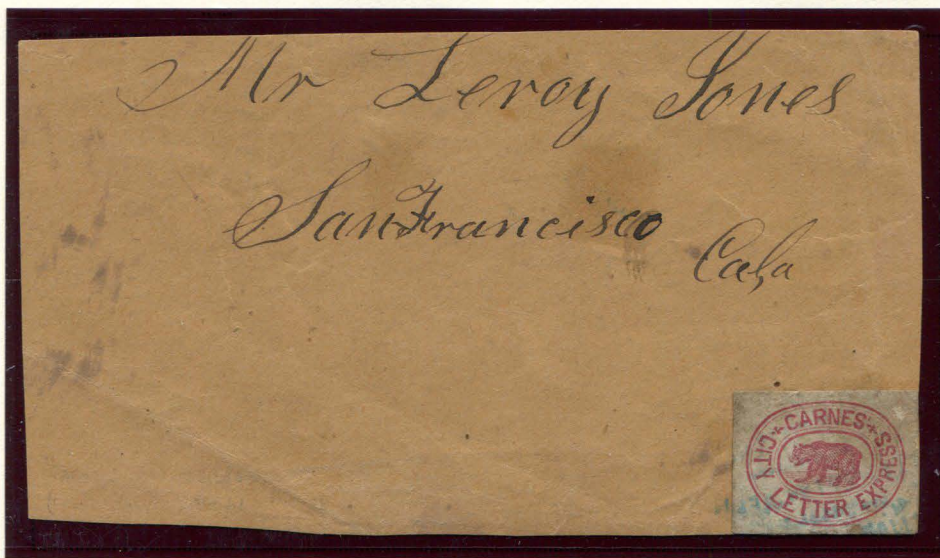 Mr Leroy Jones
San Francisco
Cala
CARNES'
CITY LETTER EXPRESS